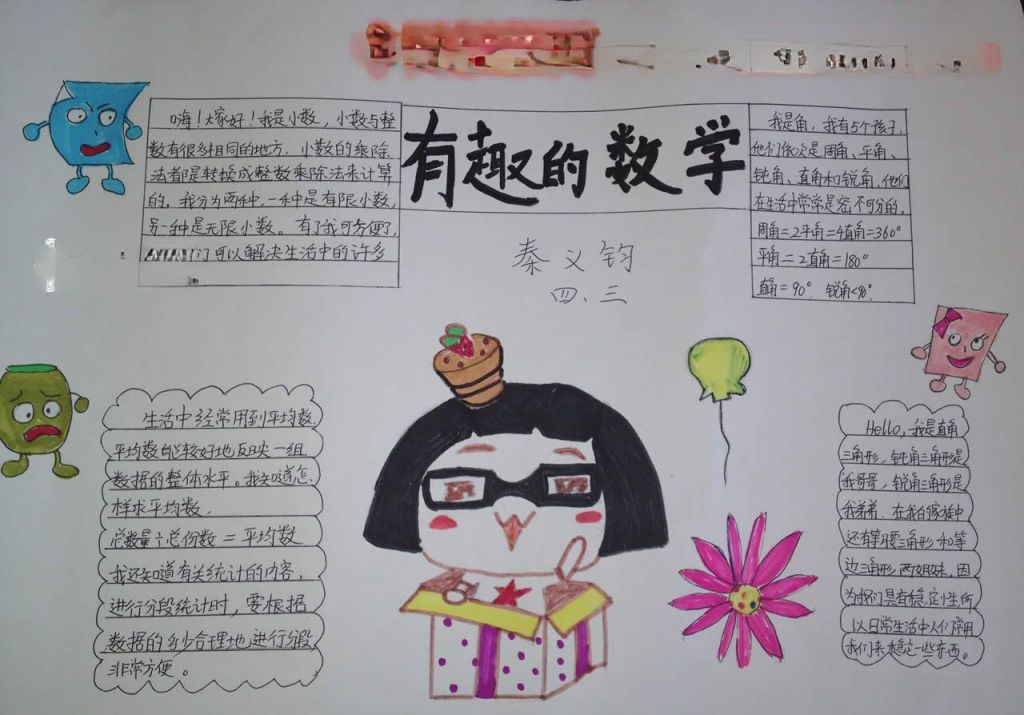 有趣的数学
秦义钧
四.三
嗨！大家好！我是小数，小数与整
数有很多相同的地方．小数的乘除
法都是转换成整数乘除法来计算
的．我分为两种，一种是有限小数，
另一种是无限小数。有了我可方便了，
们可以解决生活中的许多
我是角，我有5个孩子，
他们依次是周角、平角、
钝角、直角和锐角，他们
在生活中常常是密不可分的．
周角＝2平角＝4直角＝360°
平角＝2直角＝180°
直角＝90° 锐角<90°
生活中经常用到平均数．
平均数能较好地反映一组
数据的整体水平。我知道怎
样求平均数．
总数量÷总份数＝平均数
我还知道有关统计的内容，
进行分段统计时，要根据
数据的多少合理地进行分段
非常方便。
Hello，我是直角
三角形，钝角三角形是
我哥哥，锐角三角形是
我弟弟．在我的家族中
还有等腰三角形和等
边三角形两姐妹，因
为我们具有稳定性所
以日常生活中人们常用
我们来稳定一些东西。